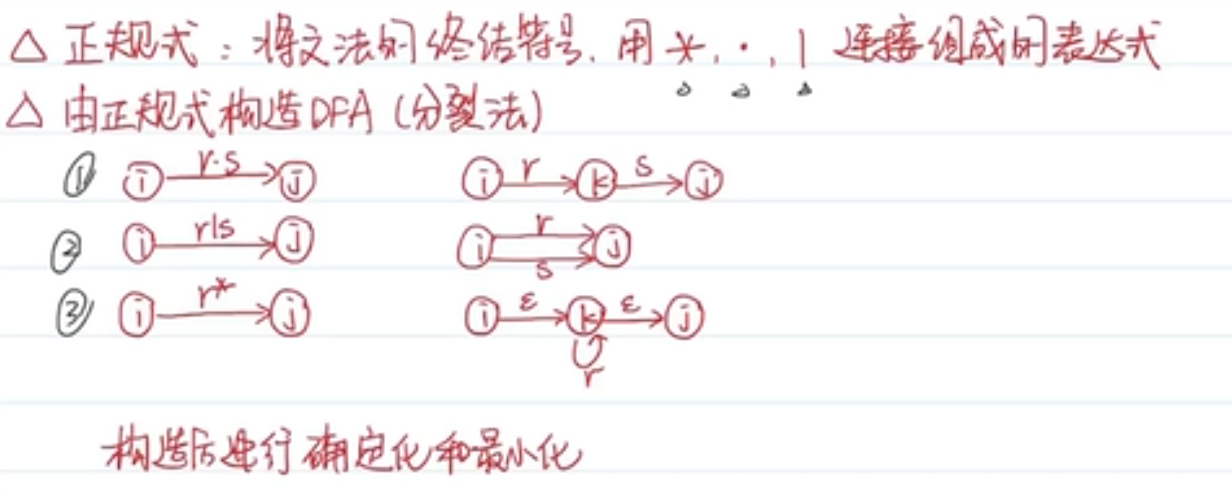 △ 正规式：将文法的终结符号、用 *, ·, | 连接组成的表达式
△ 由正规式构造DFA (分裂法)
① i r·s j i r k s j
② i r|s j i r s j
③ i r* j i ε k ε j r
构造后进行确定化和最小化